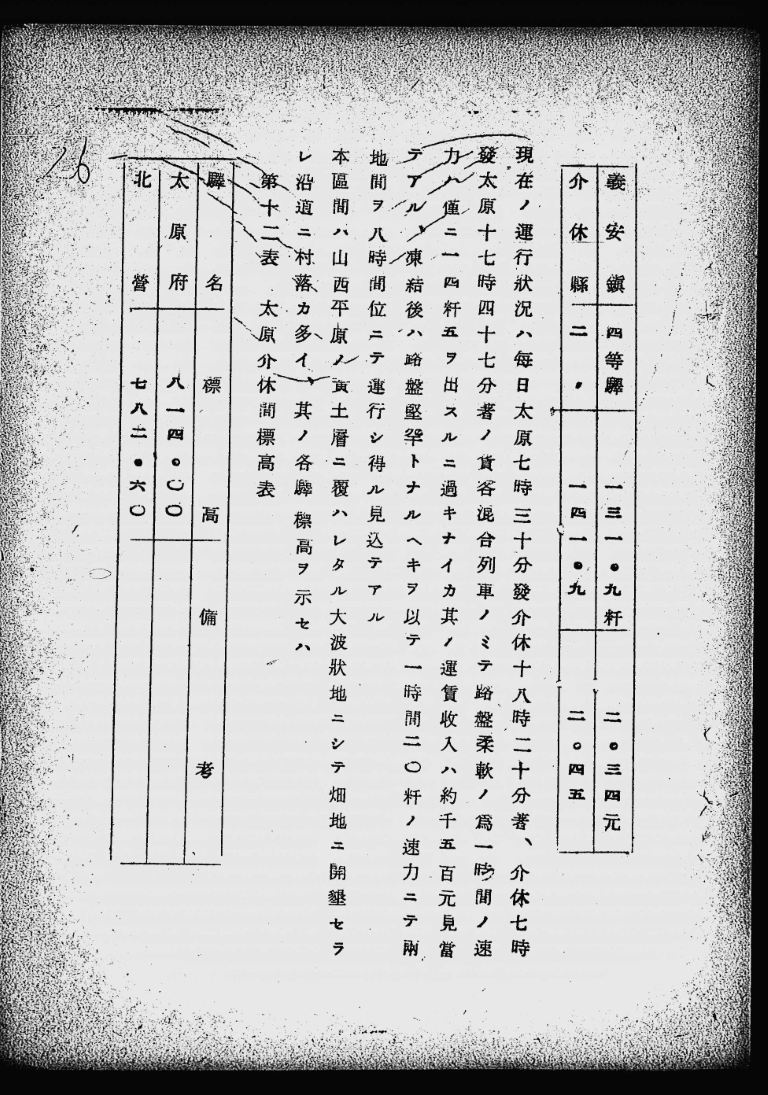 義安鎭 四等驛 一三一・九粁 二・三四元
介休縣 二〃 一四一・九 二・四五
現在ノ運行狀況ハ每日太原七時三十分發介休十八時二十分著、介休七時
發太原十七時四十七分著ノ貨客混合列車ノミテ路盤柔軟ノ爲一時間ノ速
力ハ僅ニ一四粁五ヲ出スルニ過キナイカ其ノ運賃收入ハ約千五百元見當
テアル、凍結後ハ路盤堅牢トナルヘキヲ以テ一時間二〇粁ノ速力ニテ兩
地間ヲ八時間位ニテ運行シ得ル見込テアル
本區間ハ山西平原ノ黃土層ニ覆ハレタル大波狀地ニシテ畑地ニ開墾セラ
レ沿道ニ村落カ多イ、其ノ各驛標高ヲ示セハ
第十二表 太原介休間標高表
驛名 標高 備考
太原府 八一四・〇〇
北營 七八二・六〇
26